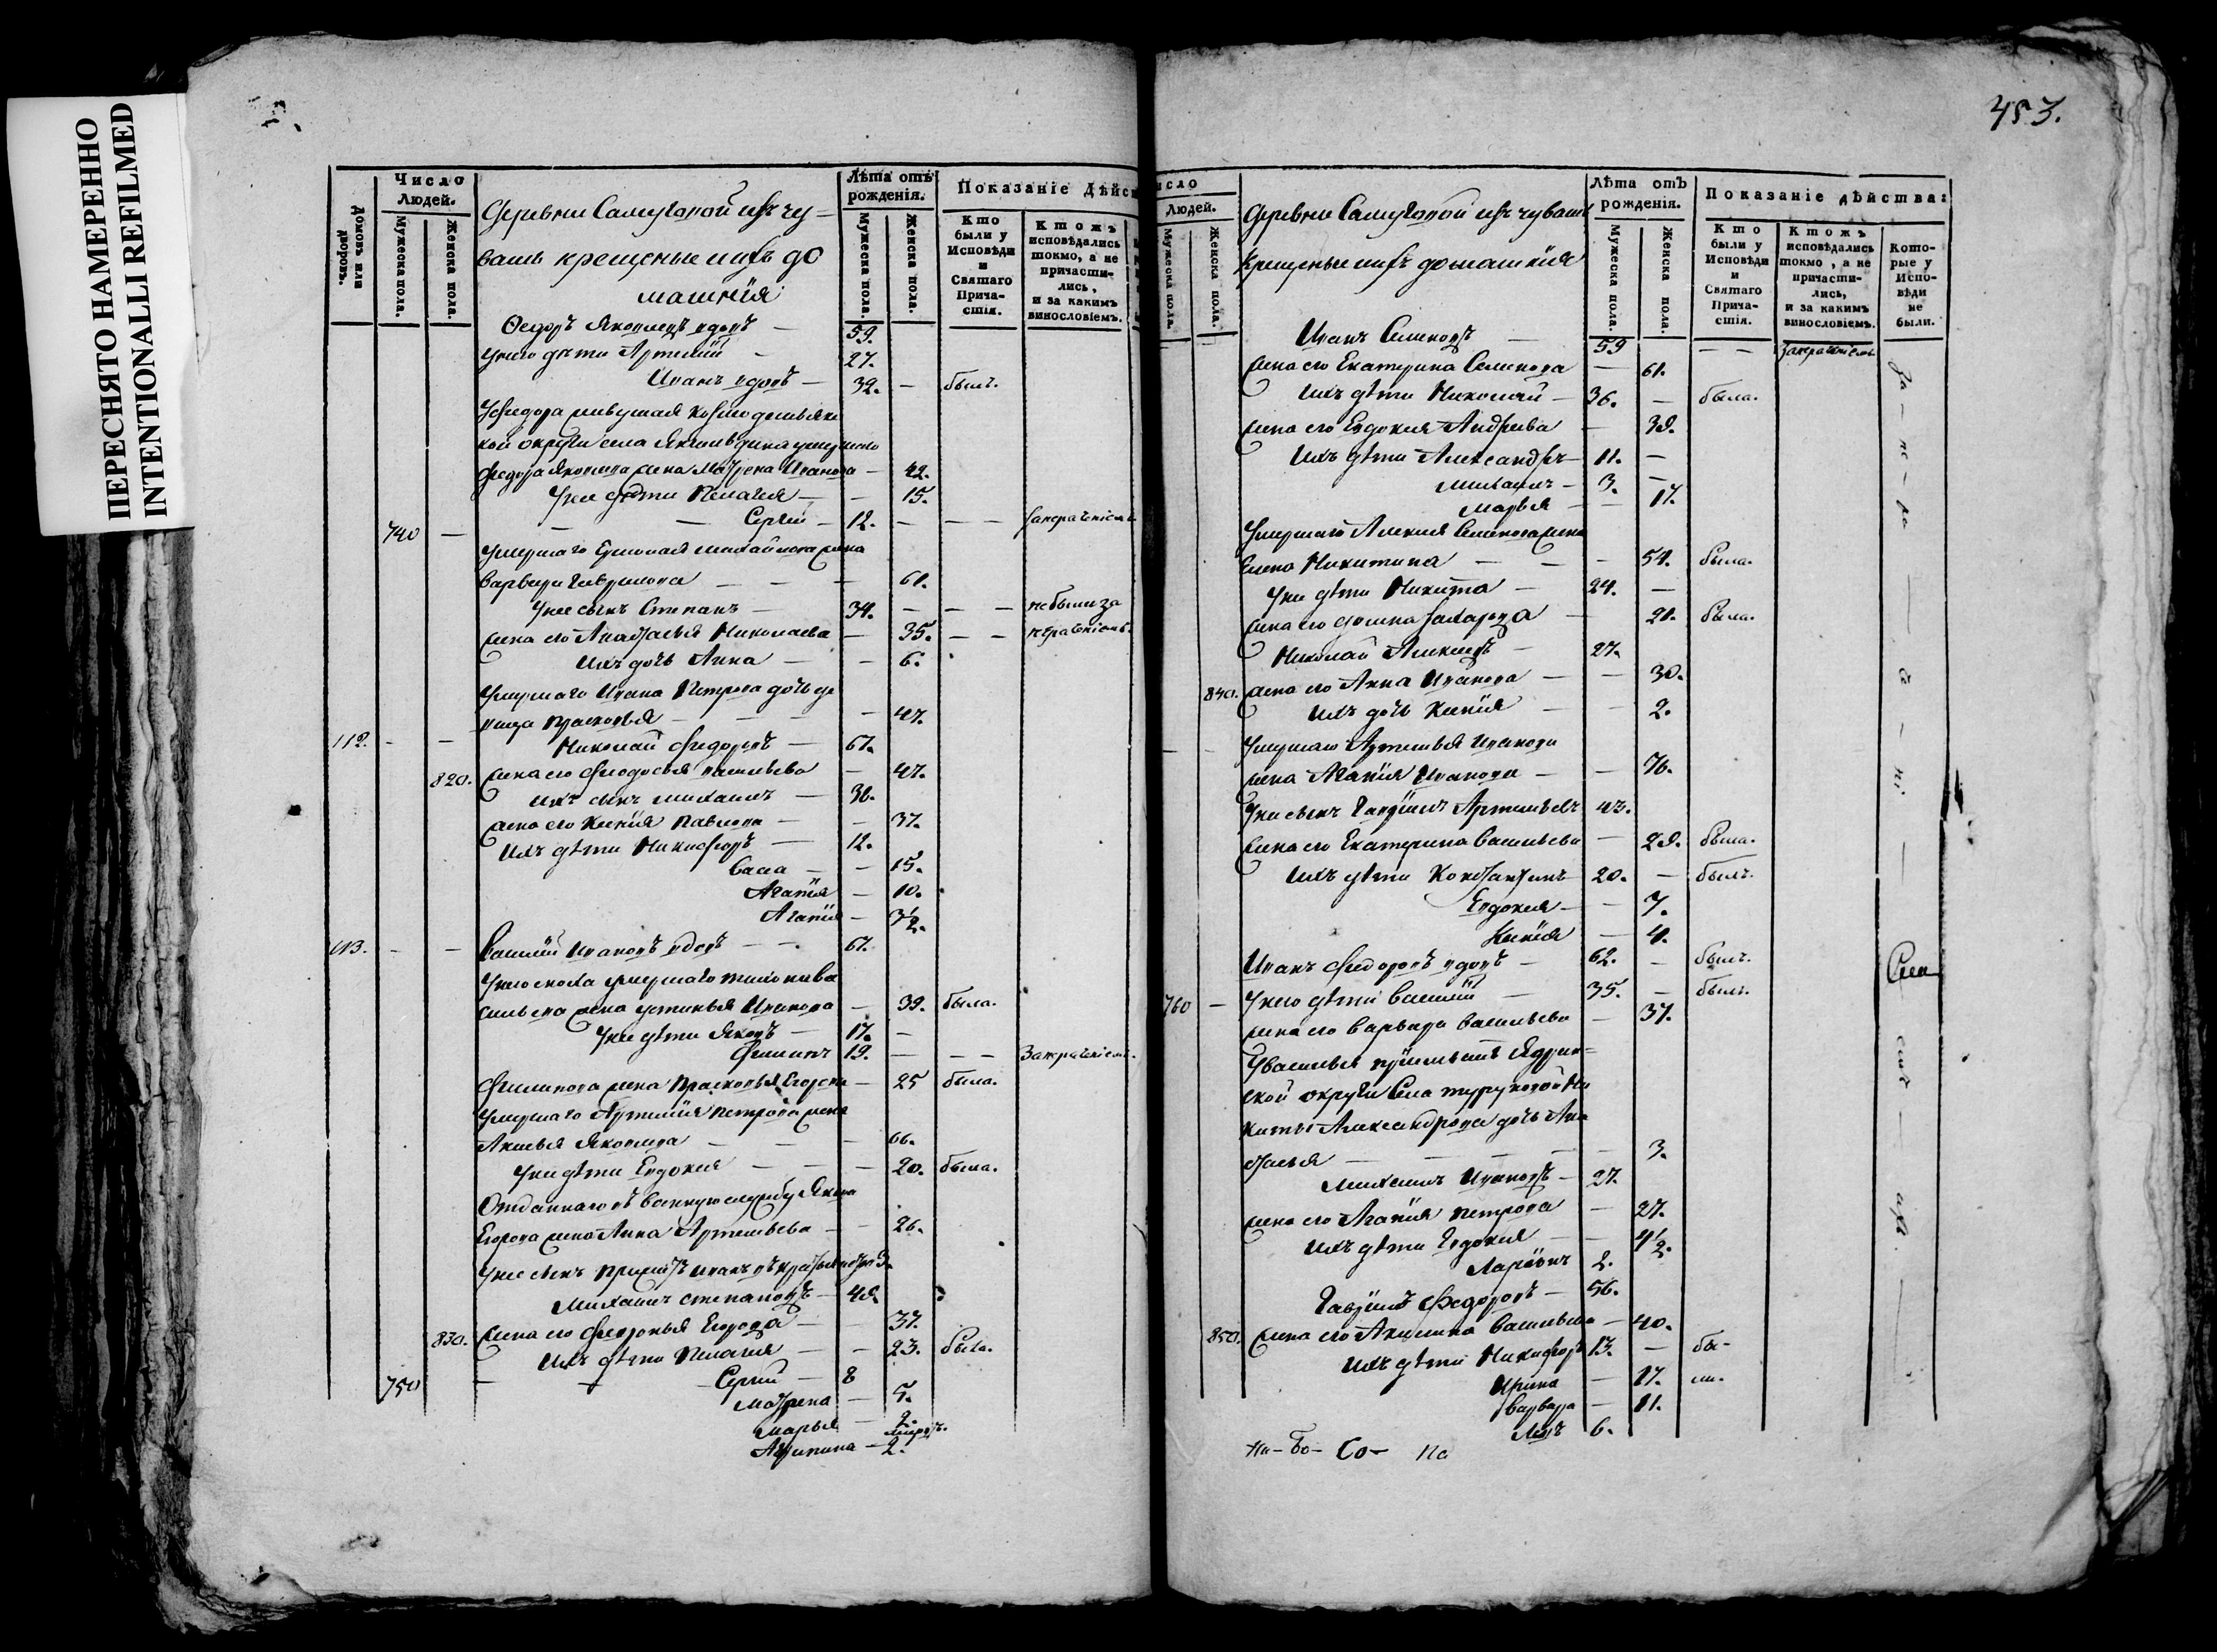 ПЕРЕСНЯТО НАМЕРЕННО
INTENTIONALLI REFILMED
Домовъ или дворовъ.
Число Людей.
Мужеска пола.
Женска пола.
Деревни Самуковой изъ чу=
вашъ крещеные и ихъ до
машнія
Лѣта отъ рожденія.
Мужеска пола.
Женска пола.
Показаніе Дѣйс
Кто были у Исповѣди и Святаго Прича-стія.
Ктожъ исповѣдались токмо, а не причасти-лись, и за какимъ винословіемъ.
Ѳедоръ Яковлевъ вдовъ — 59.
У него дѣти Артемій — 27.
Иванъ вдовъ — 32. — былъ.
кой округи села
Федора Яковлева жена Матрена Иванова — 42.
У нее дѣти Пелагея — — 15.
740 — — — Сергей — 12. — — —
Умершаго Ермолая Михайлова жена
Варвара Гаврилова — — — 61.
У нее сынъ Степанъ — 34. — — — не были за
жена его Анастасья Николаева — 35. — —
Ихъ дочь Анна — — 6.
Умершаго Ивана Петрова дочь де
вица Прасковья — — — 47.
112. — — Николай Федоровъ — 67.
820. жена его Феодосья Васильева — 47.
Ихъ сынъ Михаилъ — 38.
жена его Ксенія Павлова — — 37.
Ихъ дѣти Никифоръ — 12.
Васса — — 15.
Агапія — 10.
Агапія — 3½.
113. — — Василій Ивановъ вдовъ — — 67.
У него сноха умершаго Тихона Ва
сильева жена Устинья Иванова — 39. была.
У нее дѣти Яковъ — 17. —
Филипъ 19. — — —
Филипова жена Прасковья Егорова — 25 была.
Умершаго Артемія Петрова жена
Акилья Яковлева — — — 66.
У ней дѣти Евдокея — — — 20. была.
Отданнаго въ Военную службу Якова
Егорова жена Анна Артемьева — — 26.
У нее сынъ
Михаилъ Степановъ — 48.
830. жена его Февронья Егорова — — 37.
Ихъ дѣти Пелагея — — 23. была.
750 — — Сергей — 8
Матрена — 5.
Марья — 2.
Акулина — 2.
453.
исло Людей.
Мужеска пола.
Женска пола.
Деревни Самуковой изъ чуваш
крещеные и ихъ домашнія
Лѣта отъ рожденія.
Мужеска пола.
Женска пола.
Показаніе дѣйства:
Кто были у Исповѣди и Святаго Прича-стія.
Ктожъ исповѣдались токмо, а не причасти-лись, и за какимъ винословіемъ.
Кото-рые у Испо-вѣди не были.
Иванъ Семеновъ — 59 — —
жена его Екатерина Семенова — 61.
Ихъ дѣти Николай — 36. — была.
жена его Евдокея Андреева — 38.
Ихъ дѣти Александръ — 11. —
Михаилъ — 3. —
Марья — — 17.
Умершаго Алексея Семенова жена
Елена Никитина — — — 54. была.
У ней дѣти Никита — 24. —
жена его Фекла Захарова — 21. была.
Николай Алексеевъ — 27.
840. жена его Анна Иванова — — 30.
Ихъ дочь Ксенія — — 2.
— — Умершаго Артемья Иванова
жена Агапія Иванова — — 76.
У нее сынъ Гаврилъ Артемьевъ 43.
жена его Екатерина Васильева — 28. была.
Ихъ дѣти Константинъ 20. — былъ.
Евдокея — — 7.
Ксенія — 4.
Иванъ Федоровъ вдовъ — 62. — былъ.
760 — У него дѣти Василій — 35. — былъ.
жена его Варвара Васильева — 37.
У Василья Ядрин=
ской округи Села Ни
киты Александрова дочь Ана
стасья — — — — — 3.
Михаилъ Ивановъ — 27.
жена его Агапія Петрова — 27.
Ихъ дѣти Евдокея — — 4½.
Ларіонъ 2.
Гаврилъ Федоровъ — 56.
850. жена его Акилина Васильева — 40.
Ихъ дѣти Никифоръ 13. — бы-
Ирина — 17. ли.
Варвара — 11.
Левъ 6.
Ни — Бо — Со — На